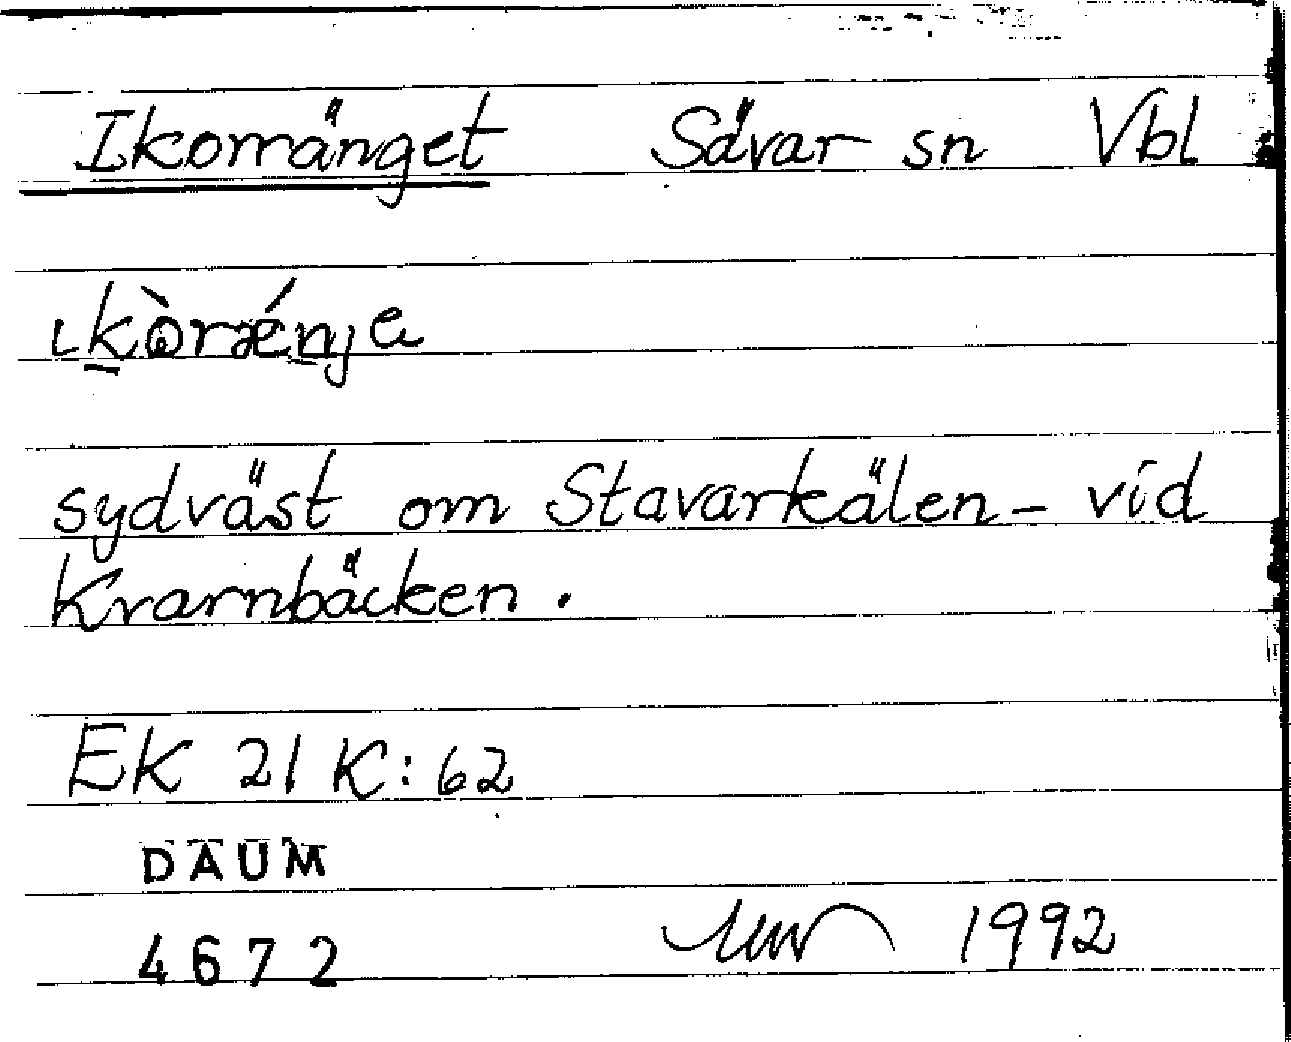 Ikornänget Sävar sn Vbl
sydväst om Stavarkälen - vid
Krarnbäcken.
EK 21 K:62
DAUM
4672 1992